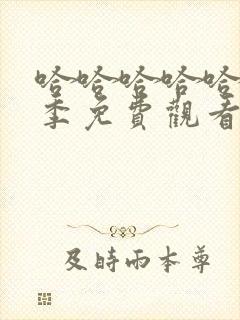 哈哈哈哈哈
季免費觀看
及時雨本尊